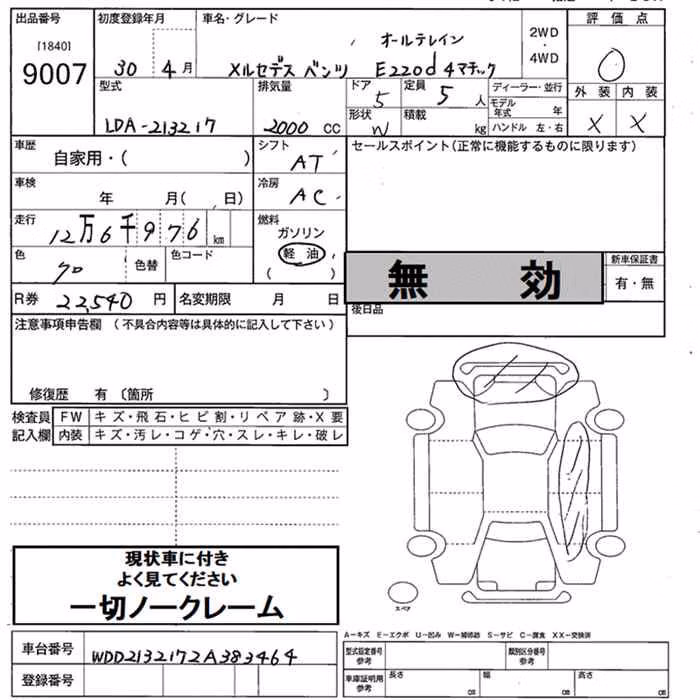 出品番号
[1840]
9007
初度登録年月
30 4 月
車名・グレード
オールテレイン
メルセデス ベンツ E220d 4マチック
2WD
・
4WD
評 価 点
0
外 装 内 装
× ×
型式
LDA-213217
排気量
2000 CC
ドア
5
形状
W
定員
5 人
積載
kg
ディーラー・並行
モデル年式 年
ハンドル 左・右
車歴
自家用・( )
シフト
AT
セールスポイント(正常に機能するものに限ります)
車検
年 月( 日)
冷房
AC
走行
12万6千976 km
燃料
ガソリン
軽 油
( )
色
クロ
色替
色コード
無 効
新車保証書
有・無
R券 22,540 円
名変期限 月 日
後日品
注意事項申告欄 (不具合内容等は具体的に記入して下さい)
修復歴 有 〔箇所 〕
検査員
記入欄
FW キズ・飛石・ヒビ割・リペア跡・X要
内装 キズ・汚レ・コゲ・穴・スレ・キレ・破レ
現状車に付き
よく見てください
一切ノークレーム
スペア
A-キズ E-エクボ U-凹み W-補修跡 S-サビ C-腐食 XX-交換済
車台番号 WDD2132172A383464
登録番号
型式指定番号
参考
類別区分番号
参考
車庫証明用
参考
長さ cm
幅 cm
高さ cm